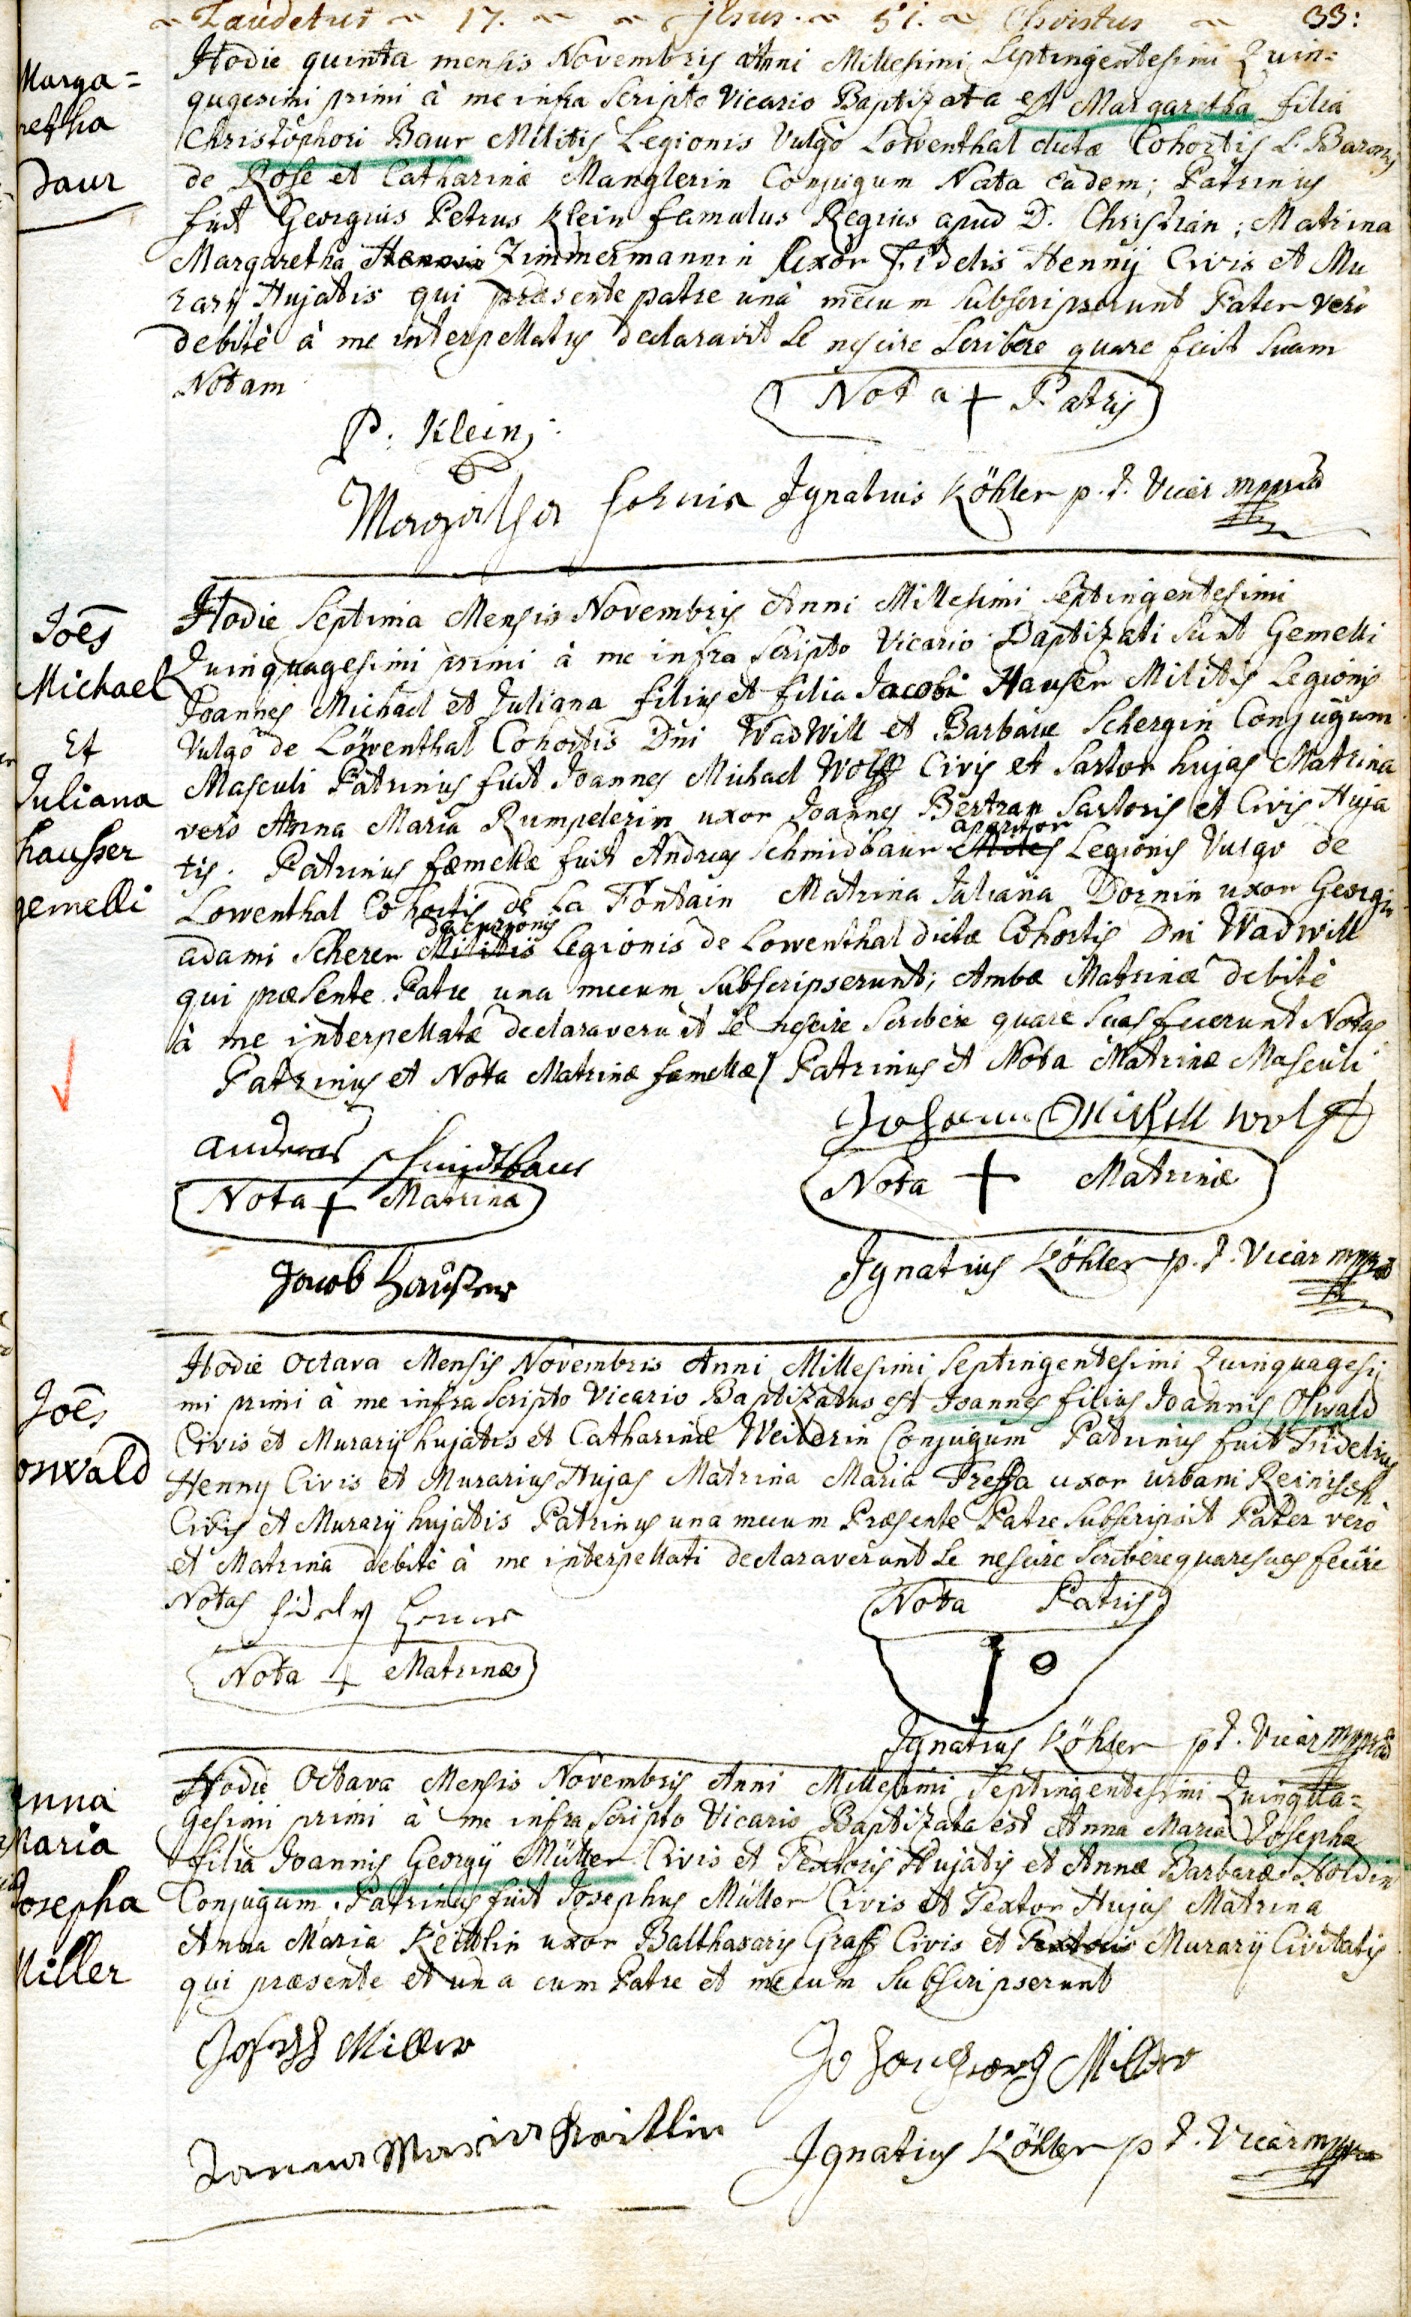 Laudetur 17. Jesus. 51. Christus 33:
Marga=
retha
Baur
Hodie quinta mensis Novembris Anni Millesimi Septingentesimi Quin=
quagesimi primi à me infra Scripto Vicario Baptizata est Margaretha filia
Christophori Baur Militis Legionis Vulgò Lowenthal dictæ Cohortis L. Baronis
de Rose et Catharinæ Manglerin Conjugum Nata eadem; Patrinus
fuit Georgius Petrus Klein famulus Regius apud D. Christian; Matrina
Margaretha Zimmermannin uxor Fidelis Henny Civis et Mu
rarÿ Hujatis qui præsente patre unà mecum subscripserunt Pater verò
debitè à me interpellatus declaravit se nescire scribere quare fecit suam
Notam
Nota + Patris
P. Klein;
Ignatius Köhler p. t. Vicar mppria
Joes
Michael
Et
Juliana
hausser
gemelli
Hodie Septima Mensis Novembris Anni Millesimi Septingentesimi
Quinquagesimi primi à me infra Scripto Vicario Baptizati sunt Gemelli
Joannes Michael et Juliana filius et filia Jacobi Hauser Militis Legionis
Vulgò de Löwenthal Cohortis Dni WadWill et Barbaræ Schergin Conjugum
Masculi Patrinus fuit Joannes Michael Wolff Civis et Sartor hujas Matrina
vero Anna Maria Rumpelerin uxor Joannes Bertran Sartoris et Civis Huja
tis. Patrinus fæmellæ fuit Andreas Schmidbaur apparitor Legionis Vulgo de
Lowenthal Cohortis de La Fontain Matrina Juliana Dornin uxor Georgii
adami Scherer Militis decurionis Legionis de Lowenthal dictæ Cohortis Dni Wadwill
qui præsente Patre una mecum subscripserunt; Ambæ Matrinæ debitè
à me interpellatæ declaraverunt se nescire scribere quare suas fecerunt Notas
Patrinus et Nota Matrinæ fæmellæ / Patrinus et Nota Matrinæ Masculi
Johann Michell Wolff
andreas schmidtbaur
Nota + Matrina
Nota + Matrinæ
Jacob Hausser
Ignatius Köhler p. t. Vicar mppria
Joes
oswald
Hodie Octava Mensis Novembris Anni Millesimi Septingentesimi Quinquagesi
mi primi à me infra Scripto Vicario Baptizatus est Joannes filius Joannis Oswald
Civis et Murarÿ hujatis et Catharinæ Conjugum Patrinus fuit Fidelius
Henny Civis et Murarius Hujas Matrina Maria Tressa uxor urbani Reinisch
Civis et Murarÿ hujatis Patrinus una mecum Præsente Patre subscripsit Pater verò
et Matrina debitè à me interpellati declaraverunt se nescire scribere quare suas fecêre
Notas
Nota Patris
fidely Henne
Nota + Matrinæ
Ignatius Köhler p t. Vicar mppria
Anna
Maria
Josepha
Miller
Hodie Octava Mensis Novembris Anni Millesimi Septingentesimi Quinqua=
gesimi primi à me infra Scripto Vicario Baptizata est Anna Maria Josepha
filia Joannis Georgÿ Müller Civis et Textoris Hujatis et Annæ Barbaræ Holdin
Conjugum; Patrinus fuit Josephus Müller Civis et Textor Hujas Matrina
Anna Maria Keitlin uxor Balthasarÿ Graff Civis et Textoris Murarÿ Civitatis
qui præsente et una cum Patre et mecum subscripserunt
Joseph Miller
Johan Georg Miller
Ignatius Köhler p t. Vicar mppria